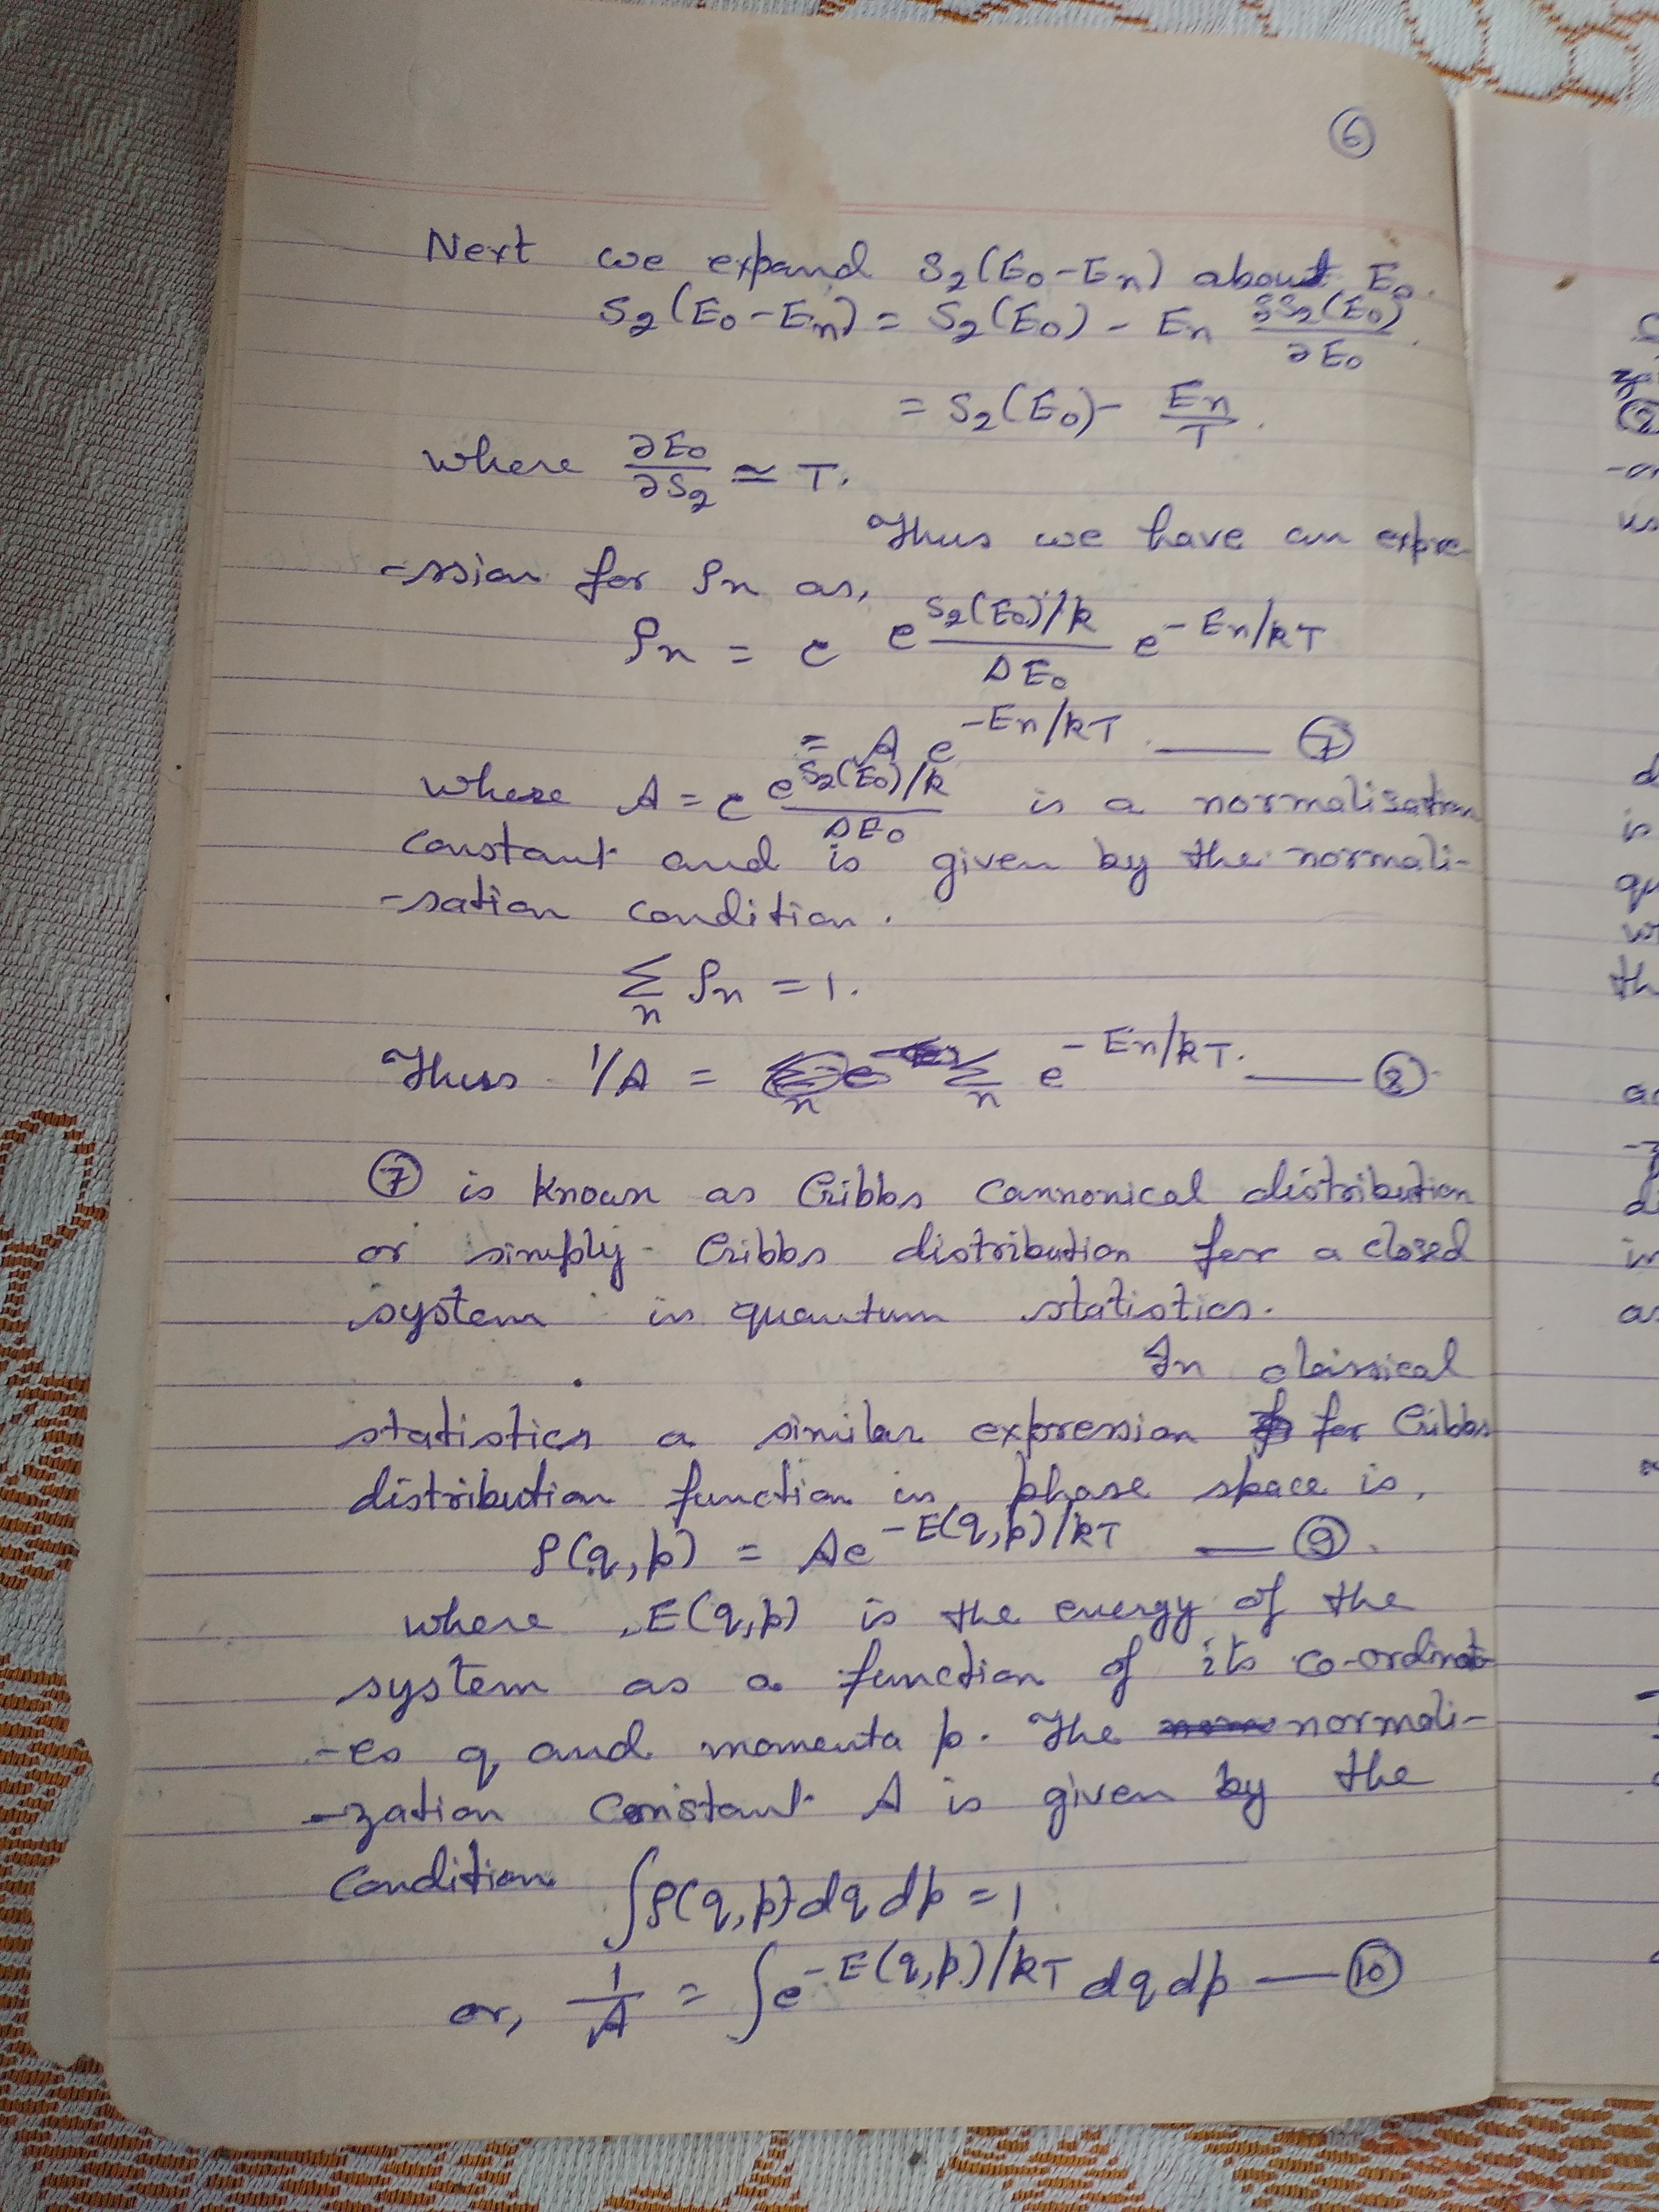 6
Next we expand S₂(E₀-Eₙ) about E₀.
S₂(E₀-Eₙ) = S₂(E₀) - Eₙ ∂S₂(E₀)/∂E₀.
= S₂(E₀) - Eₙ/T.
where ∂E₀/∂S₂ ≃ T.
Thus we have an expre-
-ssion for ρₙ as,
ρₙ = c e^{S₂(E₀)/k}/ΔE₀ e^{-Eₙ/kT}
= A e^{-Eₙ/kT} —— 7
where A = c e^{S₂(E₀)/k}/ΔE₀ is a normalisation
constant and is given by the normali-
-sation condition.
∑ₙ ρₙ = 1.
Thus 1/A = ∑ₙ e^{-Eₙ/kT}. —— 8
7 is known as Gibbs Cannonical distribution
or simply Gibbs distribution for a closed
system in quantum statistics.
In classical
statistics a similar expression for Gibbs
distribution function in phase space is,
ρ(q,p) = Ae^{-E(q,p)/kT} — 9.
where E(q,p) is the energy of the
system as a function of its co-ordinat-
-es q and momenta p. The normali-
-zation constant A is given by the
condition ∫ρ(q,p)dqdp = 1
or, 1/A = ∫e^{-E(q,p)/kT} dqdp — 10